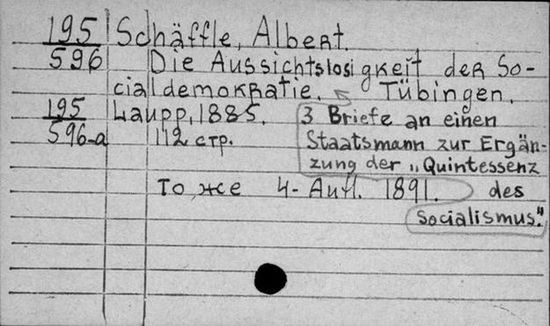 195 Schäffle, Albert.
596 Die Aussichtslosigkeit der So-
cialdemokratie. Tübingen.
195 Laupp, 1885. 3 Briefe an einen
596-a 112 стр. Staatsmann zur Ergän-
zung der „Quintessenz
То же 4- Aufl. 1891. des
Socialismus."